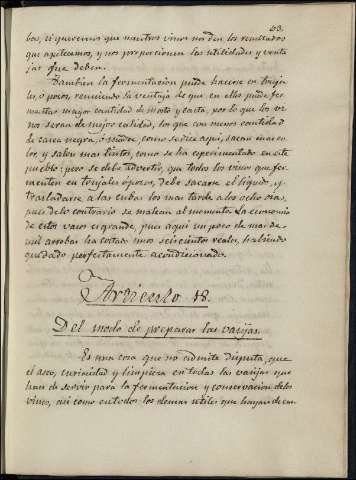 63.
bos, si queremos que nuestros vinos nos den los resultados
que apetecemos, y nos proporcionen las utilidades y venta
jas que deben.
Tambien la fermentacion puede hacerse en trujo
les, ó pozos, reuniendo la ventaja de que en ellos puede fer
mentar mayor cantidad de mosto y casca, por lo que los vi
nos seran de mejor calidad, los que con menos cantidad
de casca negra, ó madre, como se dice aqui, sacan mas co
lor, y salen mas tintos, como se ha experimentado en este
pueblo; pero se debe advertir, que todos los vinos que fer
menten en trujales ó pozos, debe sacarse el liquido, y
trasladarse a las cubas los mas tarde a los ocho dias,
pues de lo contrario se malean al momento. La economia
de estos vasos es grande, pues aqui un pozo de mas de
mil arrobas ha costado unos seiscientos reales, habiendo
quedado perfectamente acondicionado.
Articulo 18.
Del modo de preparar las vasijas.
Es una cosa que no admite disputa, que
el aseo, curiosidad y limpieza en todas las vasijas que
han de servir para la fermentacion y conservacion de los
vinos, asi como en todos los demas utiles que hayan de em